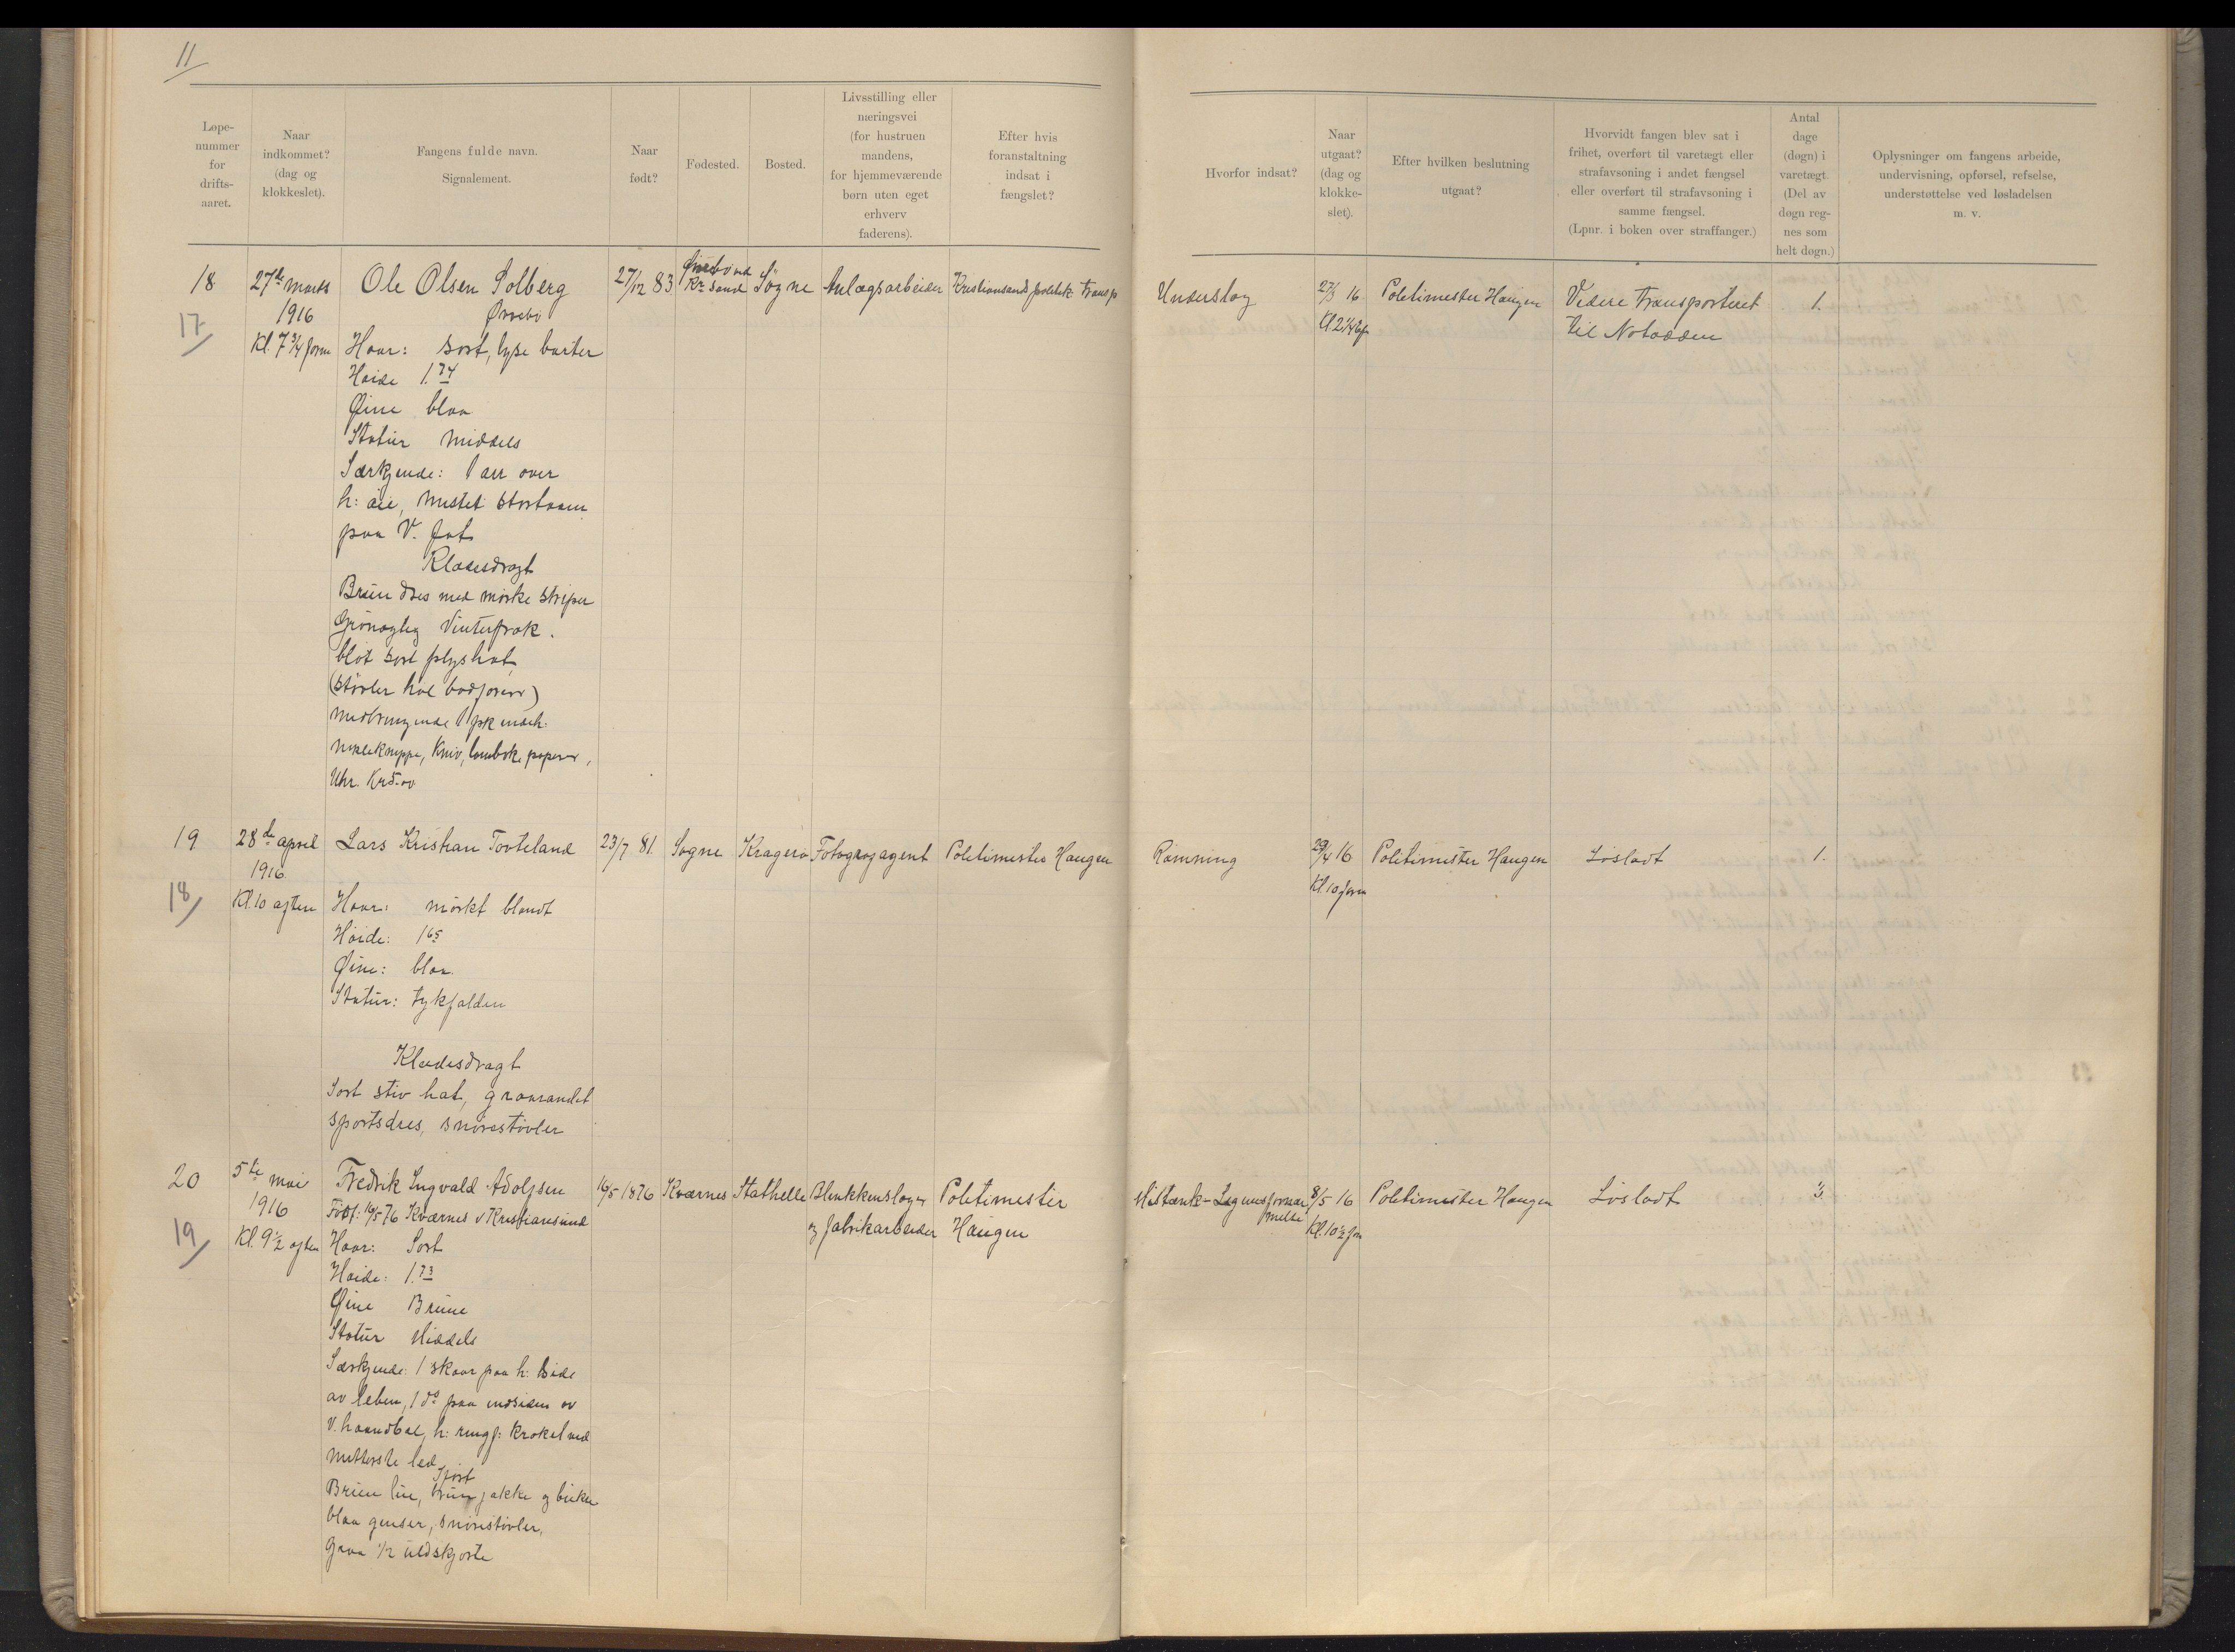 11
Løpe-
nummer
for
drifts-
aaret.
Naar
indkommet?
(dag og
klokkeslet).
Fangens fulde navn.
Signalement.
Naar
født?
Fødested.
Bosted.
Livsstilling eller
næringsvei
(for hustruen
mandens,
for hjemmeværende
børn uten eget
erhverv
faderens).
Efter hvis
foranstaltning
indsat i
fængslet?
Hvorfor indsat?
Naar
utgaat?
(dag og
klokke-
slet).
Efter hvilken beslutning
utgaat?
Hvorvidt fangen blev sat i
frihet, overført til varetægt eller
strafavsoning i andet fængsel
eller overført til strafavsoning i
samme fængsel.
(Lpnr. i boken over straffanger.)
Antal
dage
(døgn) i
varetægt.
(Del av
døgn reg-
nes som
helt døgn.)
Oplysninger om fangens arbeide,
undervisning, opførsel, refselse,
understøttelse ved løsladelsen
m. v.
18
17
27de marts
1916
Kl. 7 3/4 form
Ole Olsen Solberg
Øvrebö
Haar: sort, lyse barter
Høide 1.74
Øine blaa
Statur middels
Særkjende: 1 arr over
h: øie, mistet stortaaen
paa V. fot
Klædesdragt
Brun dres med mörke striper
Grönagtig Vinterfrak.
blöt sort plyshat
(stövler
medbringende 1 pk
nökleknippe, Kniv, lombok, papirer,
Uhr. Kr 5.00
27/12 83
Øvrebö ved
Kr Sand
Sögne
Anlægsarbeider
Kristiansands politik transp
Underslag
27/3 16
Kl. 2 1/4 ef
Politimester Haugen
Videre transporteret
til Notodden
1.
19
18
28de april
1916
Kl. 10 aften
Lars Kristian Tovteland
Haar: mörkt blondt
Höide: 1 65
Øine: blaa.
Statur: tykfalden
Klædesdragt
Sort stiv hat, graarandet
sportsdres, snörestövler
23/7 81.
Sogne
Kragerö
Fotografagent
Politimester Haugen
Römning
29/4 16
Kl. 10 form
Politimester Haugen
Lösladt
1.
20
19
5te mai
1916
Kl. 9 1/2 aften
Fredrik Ingvald Adolfsen
Födt: 16/5 76 Kværnes v Kristiansund
Haar: Sort
Høide: 1.73
Øine Brune
Statur Middels
Særkjende: 1 skaar paa h: side
av leben, 1 do paa indsiden av
V. haandbal, h: ringf: kroket ved
mitterste led
Sport
Brun lue, brun jakke og bukse
blaa genser, snörestövler,
Graa 1/2 uldskjorte
16/5 1876
Kværnes
Stathelle
Blikkenslager
og fabrikarbeider
Politimester
Haugen
Mistænk-Legemsfornær
melse
8/5 16
Kl. 10 1/2 fm
Politimester Haugen
Lösladt
3.